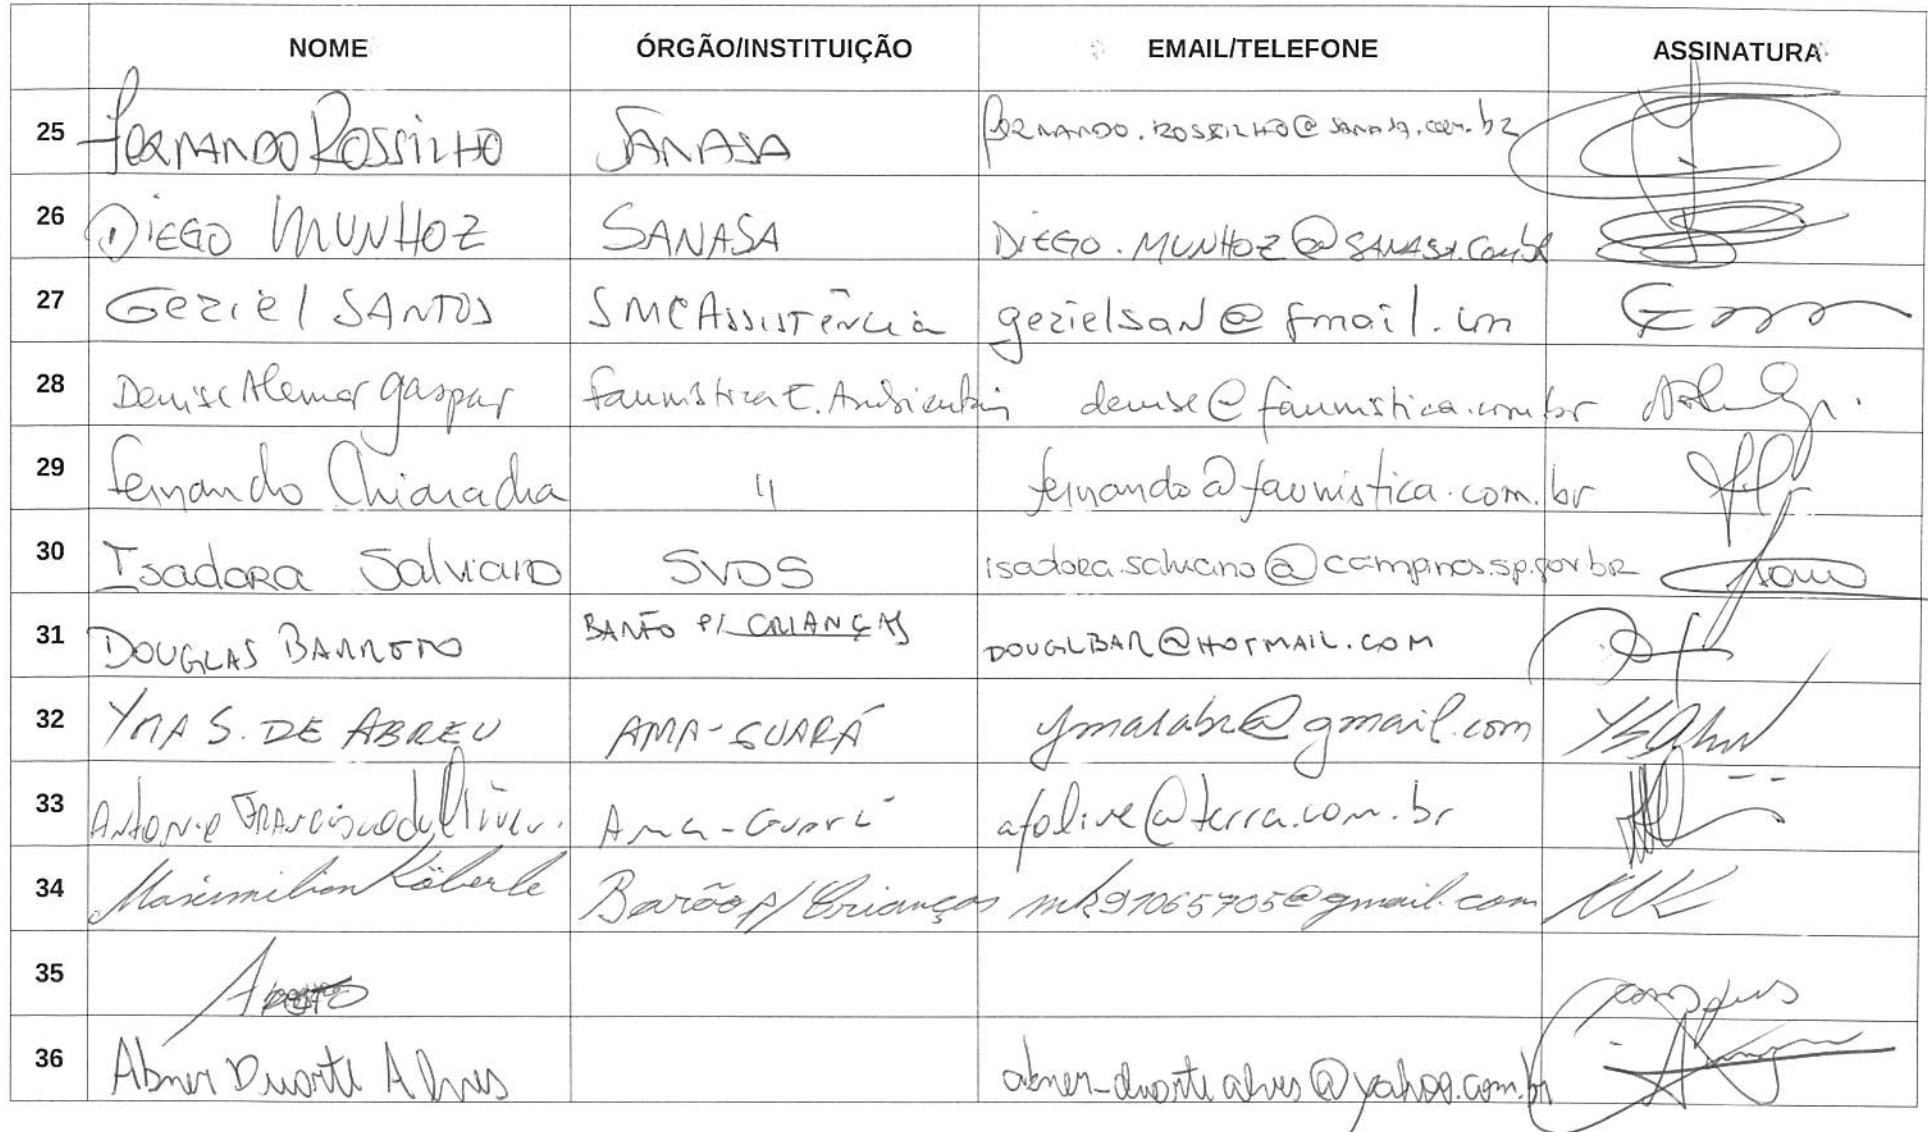 NOME ÓRGÃO/INSTITUIÇÃO EMAIL/TELEFONE ASSINATURA
25 FERNANDO ROSSILHO SANASA FERNANDO.ROSSILHO@SANASA.com.br
26 DIEGO MUNHOZ SANASA DIEGO.MUNHOZ@SANASA.com.br
27 Geziel SANTOS SMCAssistência gezielsan@gmail.com
28 Denise Alemar Gaspar denise@faunistica.com.br
29 Fernando Chiaradia " fernando@faunistica.com.br
30 Isadora Salviano SVDS isadora.salviano@campinas.sp.gov.br
31 DOUGLAS BARRETO BARÃO P/ CRIANÇAS DOUGLBAR@HOTMAIL.COM
32 YMA S. DE ABREU AMA-GUARÁ ymasabr@gmail.com
33 Antonio Francisco de Oliveira Ama-Guará afolive@terra.com.br
34 Maximilian Köberle Barão p/ Crianças mk97065705@gmail.com MK
35
36 Abner Duarte Alves abner-duartealves@yahoo.com.br